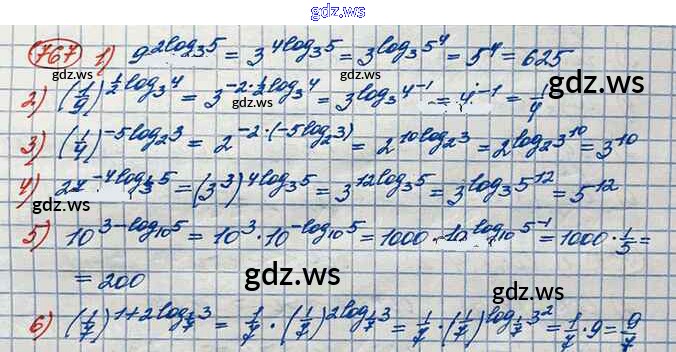 gdz.ws
767 1) 9^{2log_3 5} = 3^{4log_3 5} = 3^{log_3 5^4} = 5^4 = 625
gdz.ws gdz.ws
2) (1/9)^{1/2 log_3 4} = 3^{-2·1/2 log_3 4} = 3^{log_3 4^{-1}} = 4^{-1} = 1/4
gdz.ws gdz.ws gdz.ws
3) (1/4)^{-5log_2 3} = 2^{-2·(-5log_2 3)} = 2^{10log_2 3} = 2^{log_2 3^{10}} = 3^{10}
4) 27^{-4log_{1/3} 5} = (3^3)^{4log_3 5} = 3^{12log_3 5} = 3^{log_3 5^{12}} = 5^{12}
gdz.ws gdz.ws
5) 10^{3-log_{10} 5} = 10^3 · 10^{-log_{10} 5} = 1000 · 10^{log_{10} 5^{-1}} = 1000 · 1/5 =
= 200
gdz.ws gdz.ws
6) (1/7)^{1+2log_{1/7} 3} = 1/7 · (1/7)^{2log_{1/7} 3} = 1/7 · (1/7)^{log_{1/7} 3^2} = 1/7 · 9 = 9/7
gdz.ws